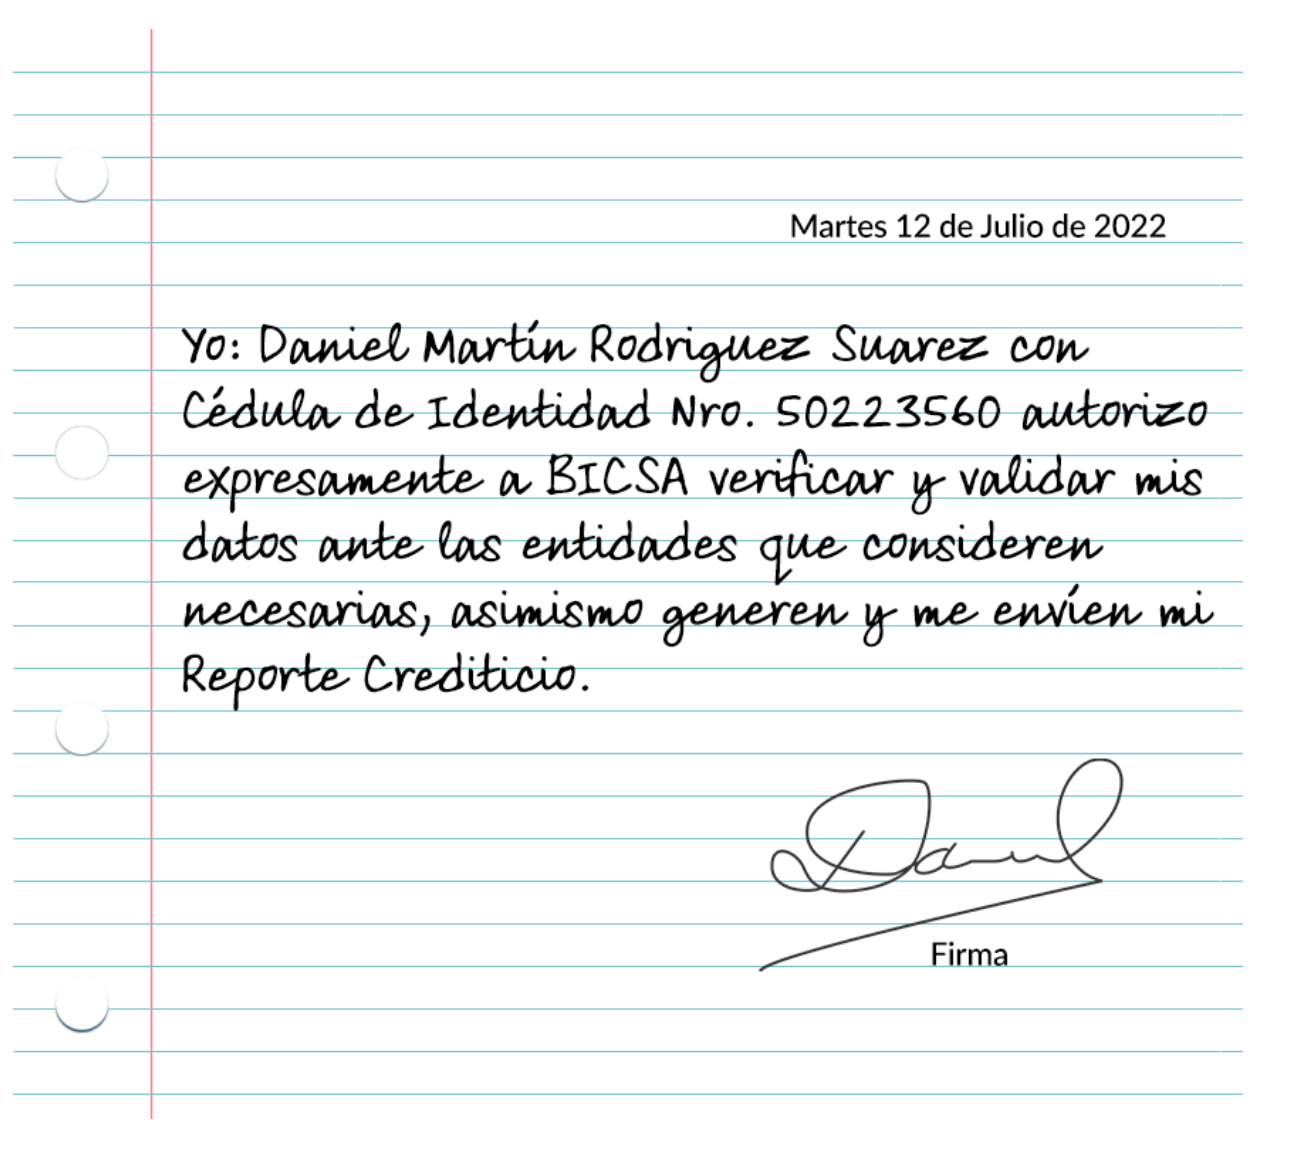 Martes 12 de Julio de 2022
Yo: Daniel Martín Rodriguez Suarez con
Cédula de Identidad Nro. 50223560 autorizo
expresamente a BICSA verificar y validar mis
datos ante las entidades que consideren
necesarias, asimismo generen y me envíen mi
Reporte Crediticio.
Daniel
Firma